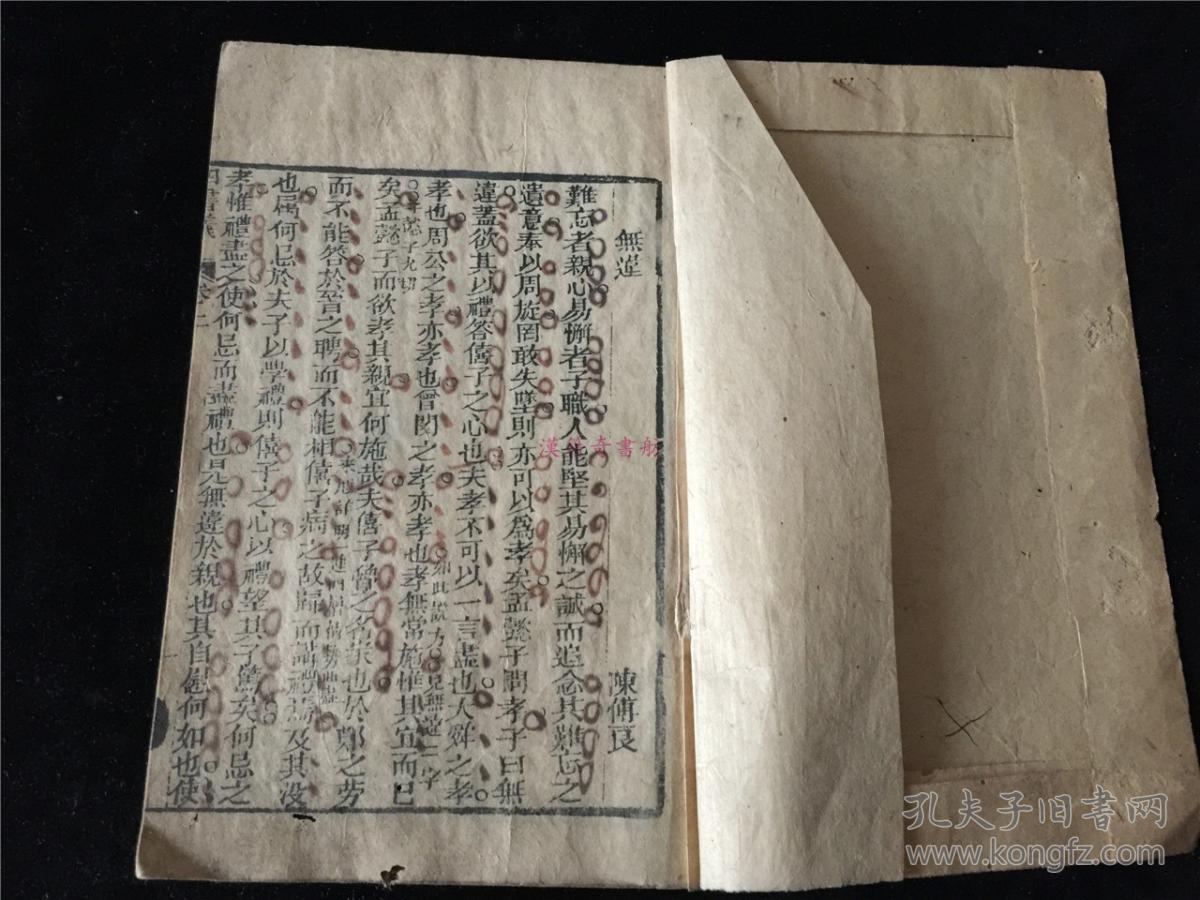 無違
陳傅良
難忘者親心易懈者子職人能堅其易懈之誠而追念其難忘之
遺意奉以周旋罔敢失墜則亦可以為孝矣孟懿子問孝子曰無
違蓋欲其以禮答僖子之心也夫孝不可以一言盡也大舜之孝
孝也周公之孝亦孝也曾閔之孝亦孝也孝無常施惟其宜而已
如此說方見無違二字
矣孟懿子而欲孝其親宜何施哉夫僖子魯之名卿也於鄭之勞
而不能答於晉之聘而不能相僖子病之故歸而講禮焉及其没
也屬何忌於夫子以學禮則僖子之心以禮望其子篤矣何忌之
孝惟禮盡之使何忌而盡禮也是無違於親也其自慰何如也使
漢花奇書舫
孔夫子旧书网
www.kongfz.com